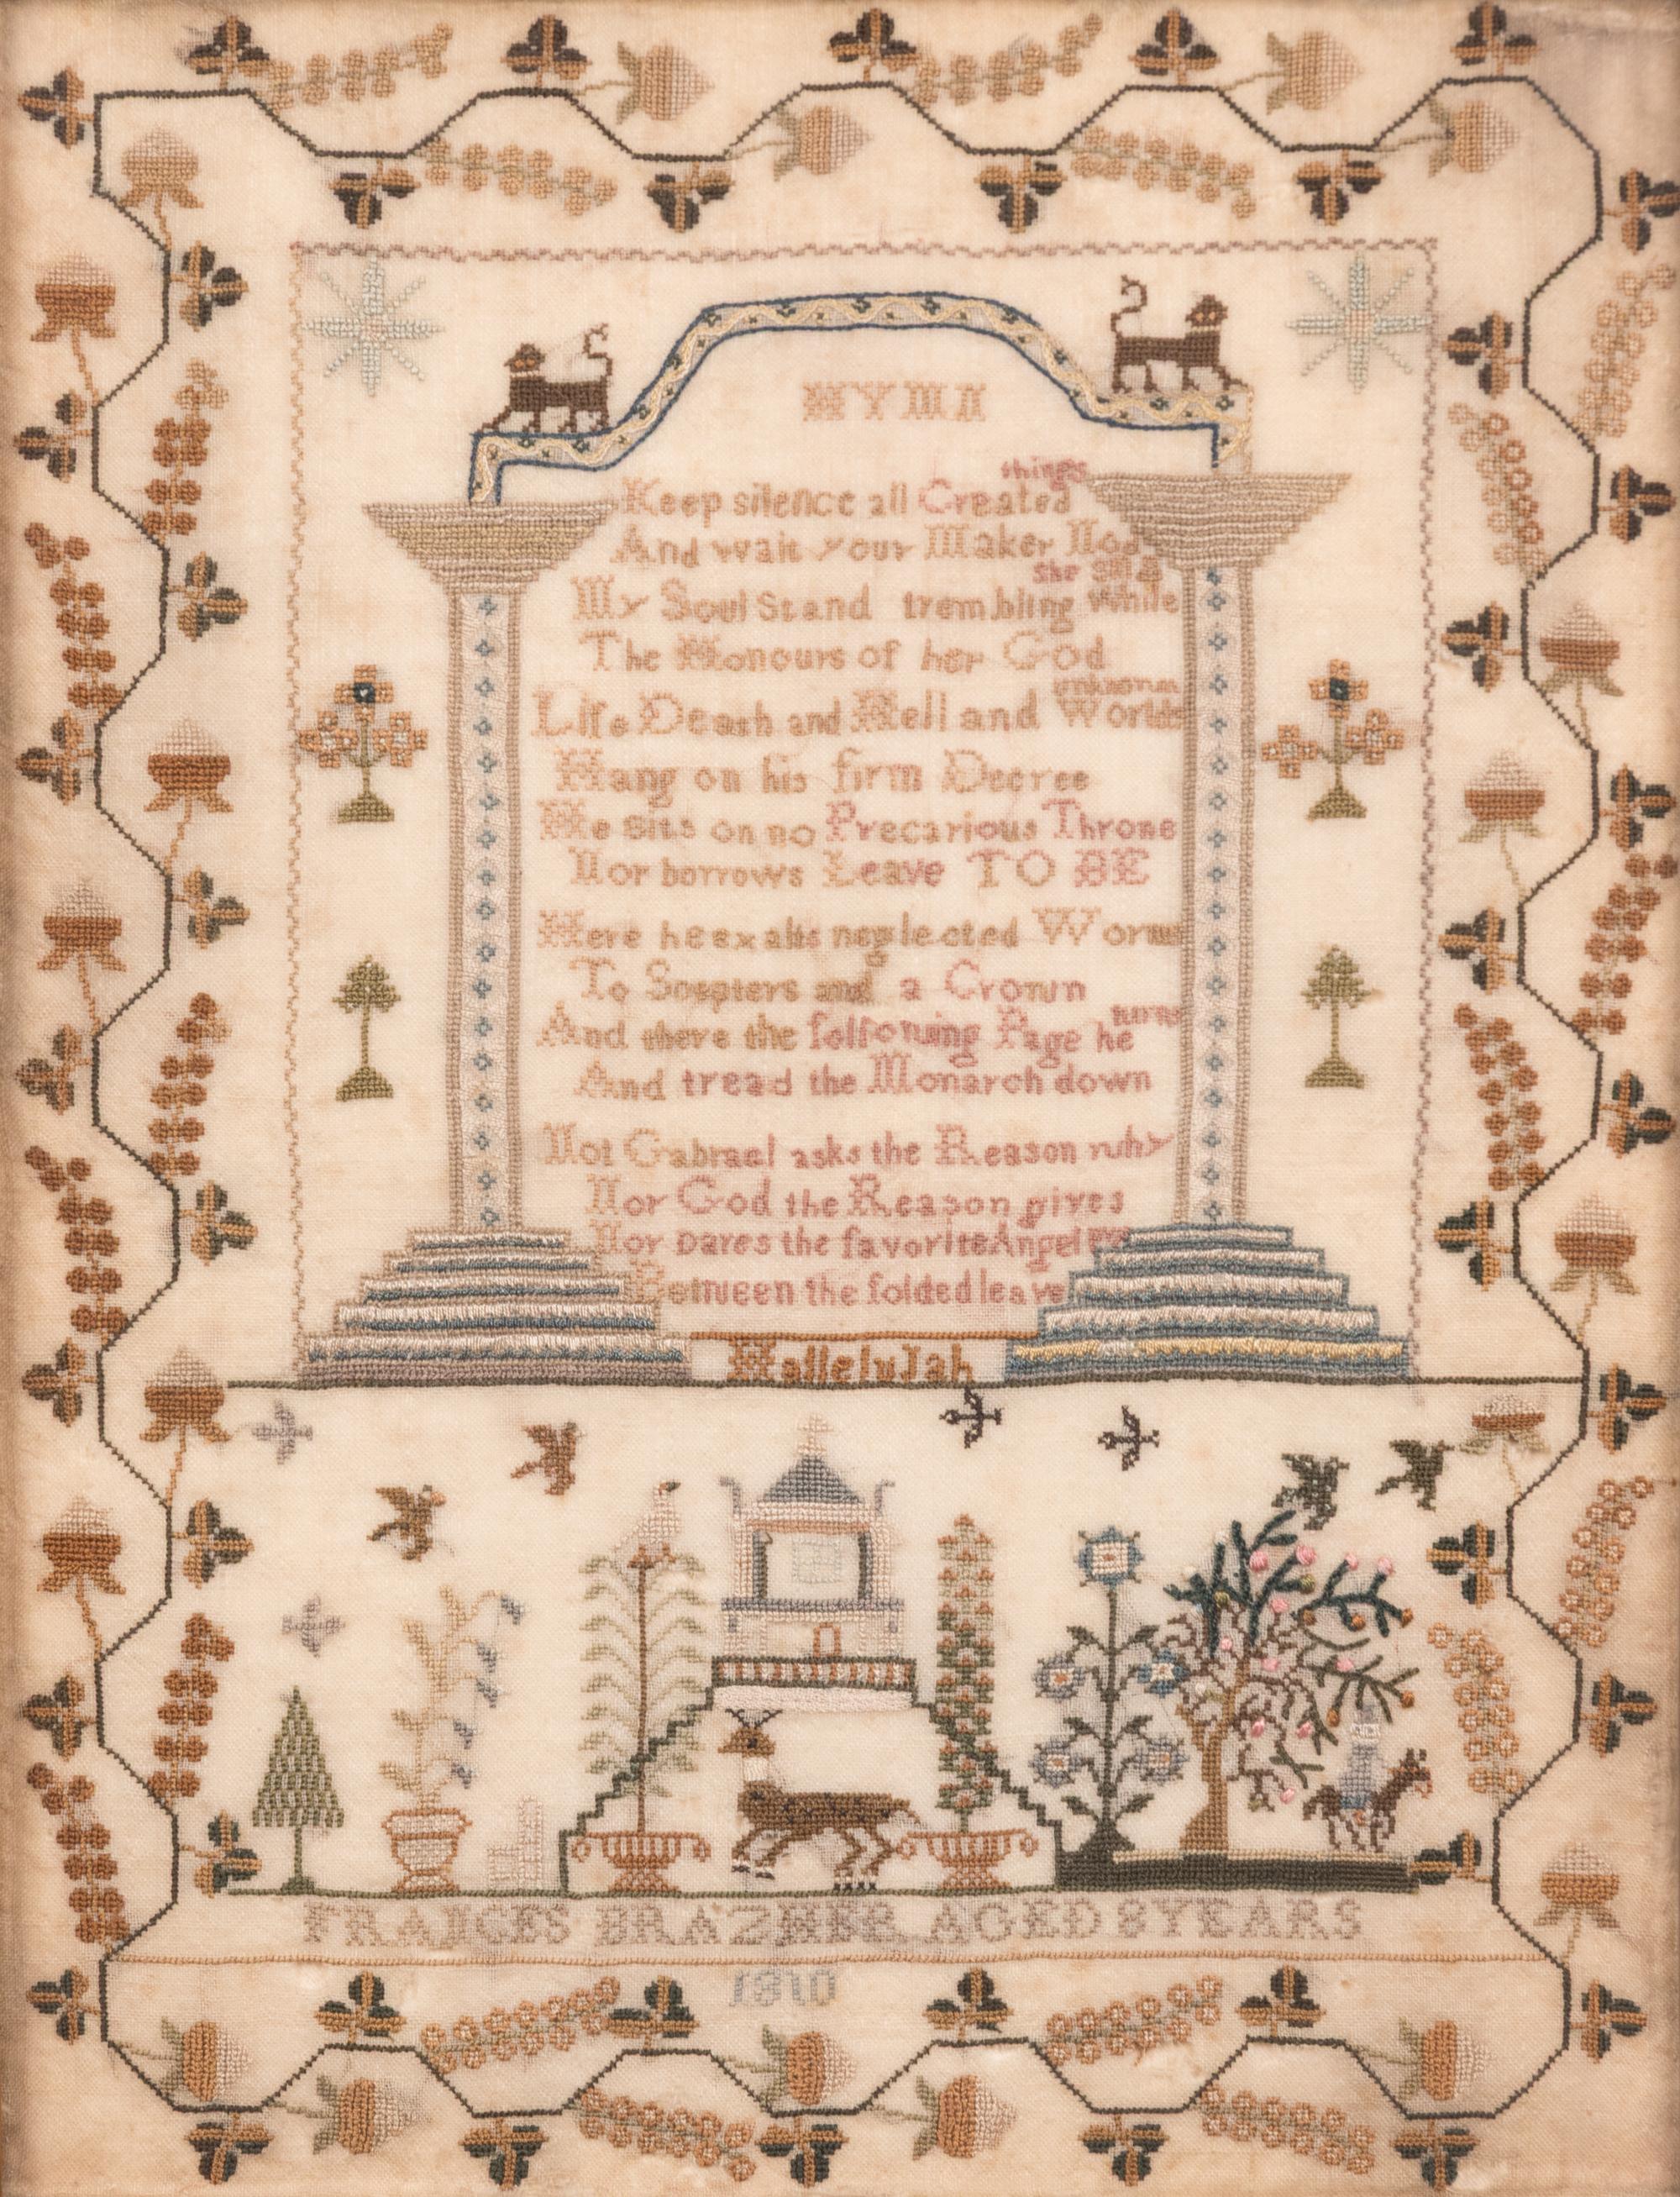 HYMN
Keep silence all Created things
And wait your Maker Nod
My Soul Stand trembling while she sing
The Honours of her God
Life Death and Hell and Worlds unknown
Hang on his firm Decree
He sits on no Precarious Throne
Nor borrows Leave TO BE
Here he exalts neglected Worms
To Scepters and a Crown
And there the following Page he turns
And tread the Monarch down
Not Gabrael asks the Reason why
Nor God the Reason gives
Nor Dares the favorite Angel
Between the folded leave
HalleluJah
FRANCES BRAZNER AGED 8 YEARS
1810